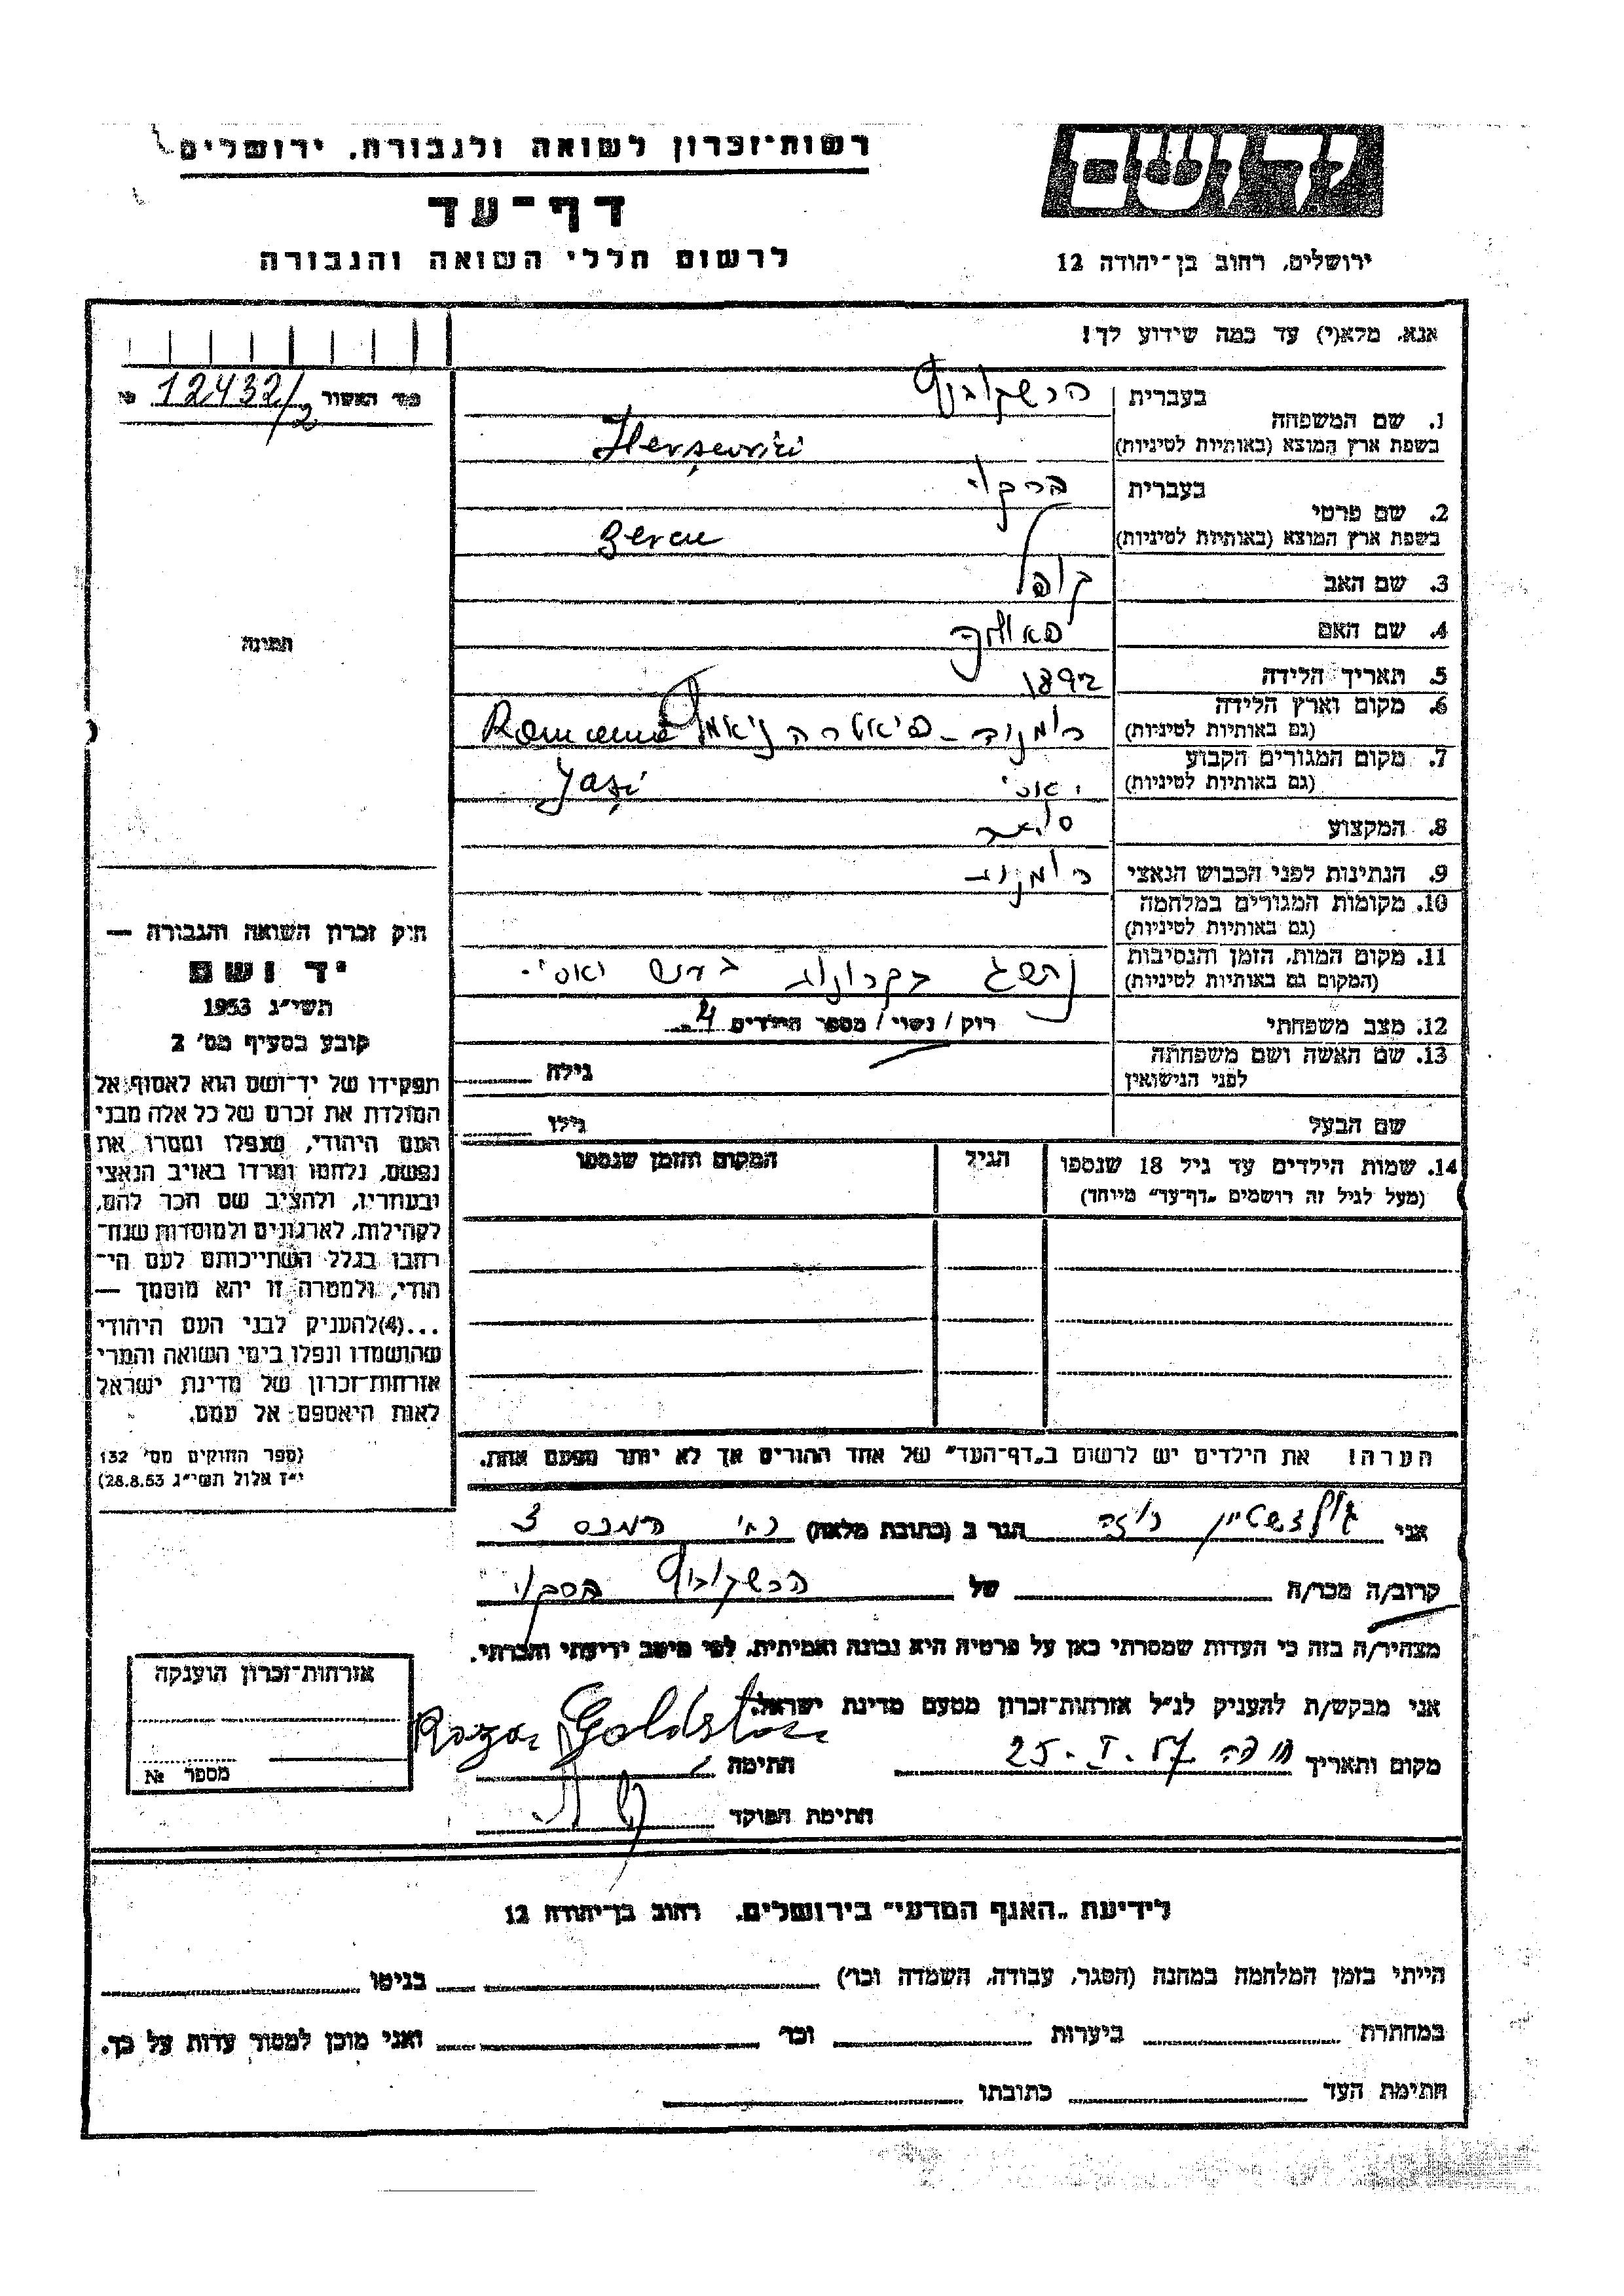 רשות־זכרון לשואה ולגבורה, ירושלים
דף־עד
לרשום חללי השואה והגבורה
יד ושם
ירושלים, רחוב בן־יהודה 12
אנא, מלא(י) עד כמה שידוע לך!
מס׳ האשור № 12432/2
תמונה
1. שם המשפחה
בעברית
בשפת ארץ המוצא (באותיות לטיניות) Herșcovici
2. שם פרטי
בעברית
בשפת ארץ המוצא (באותיות לטיניות) Bercu
3. שם האב
4. שם האם
5. תאריך הלידה 1892
6. מקום וארץ הלידה
(גם באותיות לטיניות)
7. מקום המגורים הקבוע
(גם באותיות לטיניות) Jași
8. המקצוע
9. הנתינות לפני הכבוש הנאצי
10. מקומות המגורים במלחמה
(גם באותיות לטיניות)
11. מקום המות, הזמן והנסיבות
(המקום גם באותיות לטיניות)
12. מצב משפחתי רוק / נשוי / מספר הילדים 4
13. שם האשה ושם משפחתה
לפני הנישואין
גילה
שם הבעל גילו
14. שמות הילדים עד גיל 18 שנספו
(מעל לגיל זה רושמים „דף־עד" מיוחד)
הגיל
המקום והזמן שנספו
הערה! את הילדים יש לרשום ב„דף־העד" של אחד ההורים אך לא יותר מפעם אחת.
חוק זכרון השואה והגבורה —
יד ושם
תשי״ג 1953
קובע בסעיף מס׳ 2
תפקידו של יד־ושם הוא לאסוף אל
המולדת את זכרם של כל אלה מבני
העם היהודי, שנפלו ומסרו את
נפשם, נלחמו ומרדו באויב הנאצי
ובעוזריו, ולהציב שם וזכר להם,
לקהילות, לארגונים ולמוסדות שנח־
רחבו בגלל השתייכותם לעם הי־
הודי, ולמטרה זו יהא מוסמך —
...(4)להעניק לבני העם היהודי
שהושמדו ונפלו בימי השואה והמרי
אזרחות־זכרון של מדינת ישראל
לאות היאספם אל עמם.
(ספר החוקים מס׳ 132
י״ז אלול תשי״ג 28.8.53)
אני גולדשטיין רוזה הגר ב (כתובת מלאה)
קרוב/ה מכר/ה של
מצהיר/ה בזה כי העדות שמסרתי כאן על פרטיה היא נכונה ואמיתית, לפי מיטב ידיעתי והכרתי.
אני מבקש/ת להעניק לנ״ל אזרחות־זכרון מטעם מדינת ישראל.
מקום ותאריך חיפה 25.I.57 חתימה
חתימת הפוקד
אזרחות־זכרון הוענקה
מספר №
לידיעת „האגף המדעי" בירושלים, רחוב בן־יהודה 12
הייתי בזמן המלחמה במחנה (הסגר, עבודה, השמדה וכו׳) בגיטו
במחתרת ביערות וכו׳ ואני מוכן למסור עדות על כך.
חתימת העד כתובתו